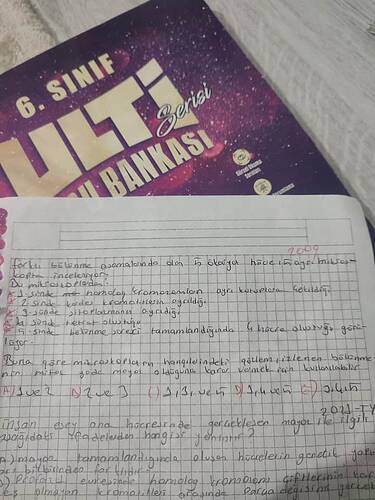 6. SINIF
ULTİ
Serisi
BANKASI
2009
farklı bölünme aşamalarında olan 5 ayrı mikros-
kopta inceleniyor.
Bu mikroskopların;
1 sinde homolog kromozomların ayrı kutuplara çekildiği
2 sinde kardeş kromatitlerin ayrıldığı
3 sinde sitoplazmanın ayrıldığı
4 sinde tetrat oluştuğu
5 sinde bölünme süreci tamamlandığında 4 hücre oluştuğu görü-
lüyor.
Buna göre mikroskopların hangilerindeki gözlem, izlenen bölünme-
nin mitoz yada mayoz olduğuna karar vermek için kullanılabilir
A) 1 ve 2 2 ve 3 C) 1,3 ve 5 D) 1,4 ve 5 E) 3,4,5
2011-
insan eşey ana hücresinde gerçekleşen mayoz ile ilgili
aşağıdaki ifadelerden hangisi yanlıştır?
A) mayoz tamamlandığında oluşan hücrelerin genetik
birbirinden farklıdır.
Profaz I evresinde homolog kromozom çiftlerinin
eş olmayan kromatitleri arasında parça değişimi